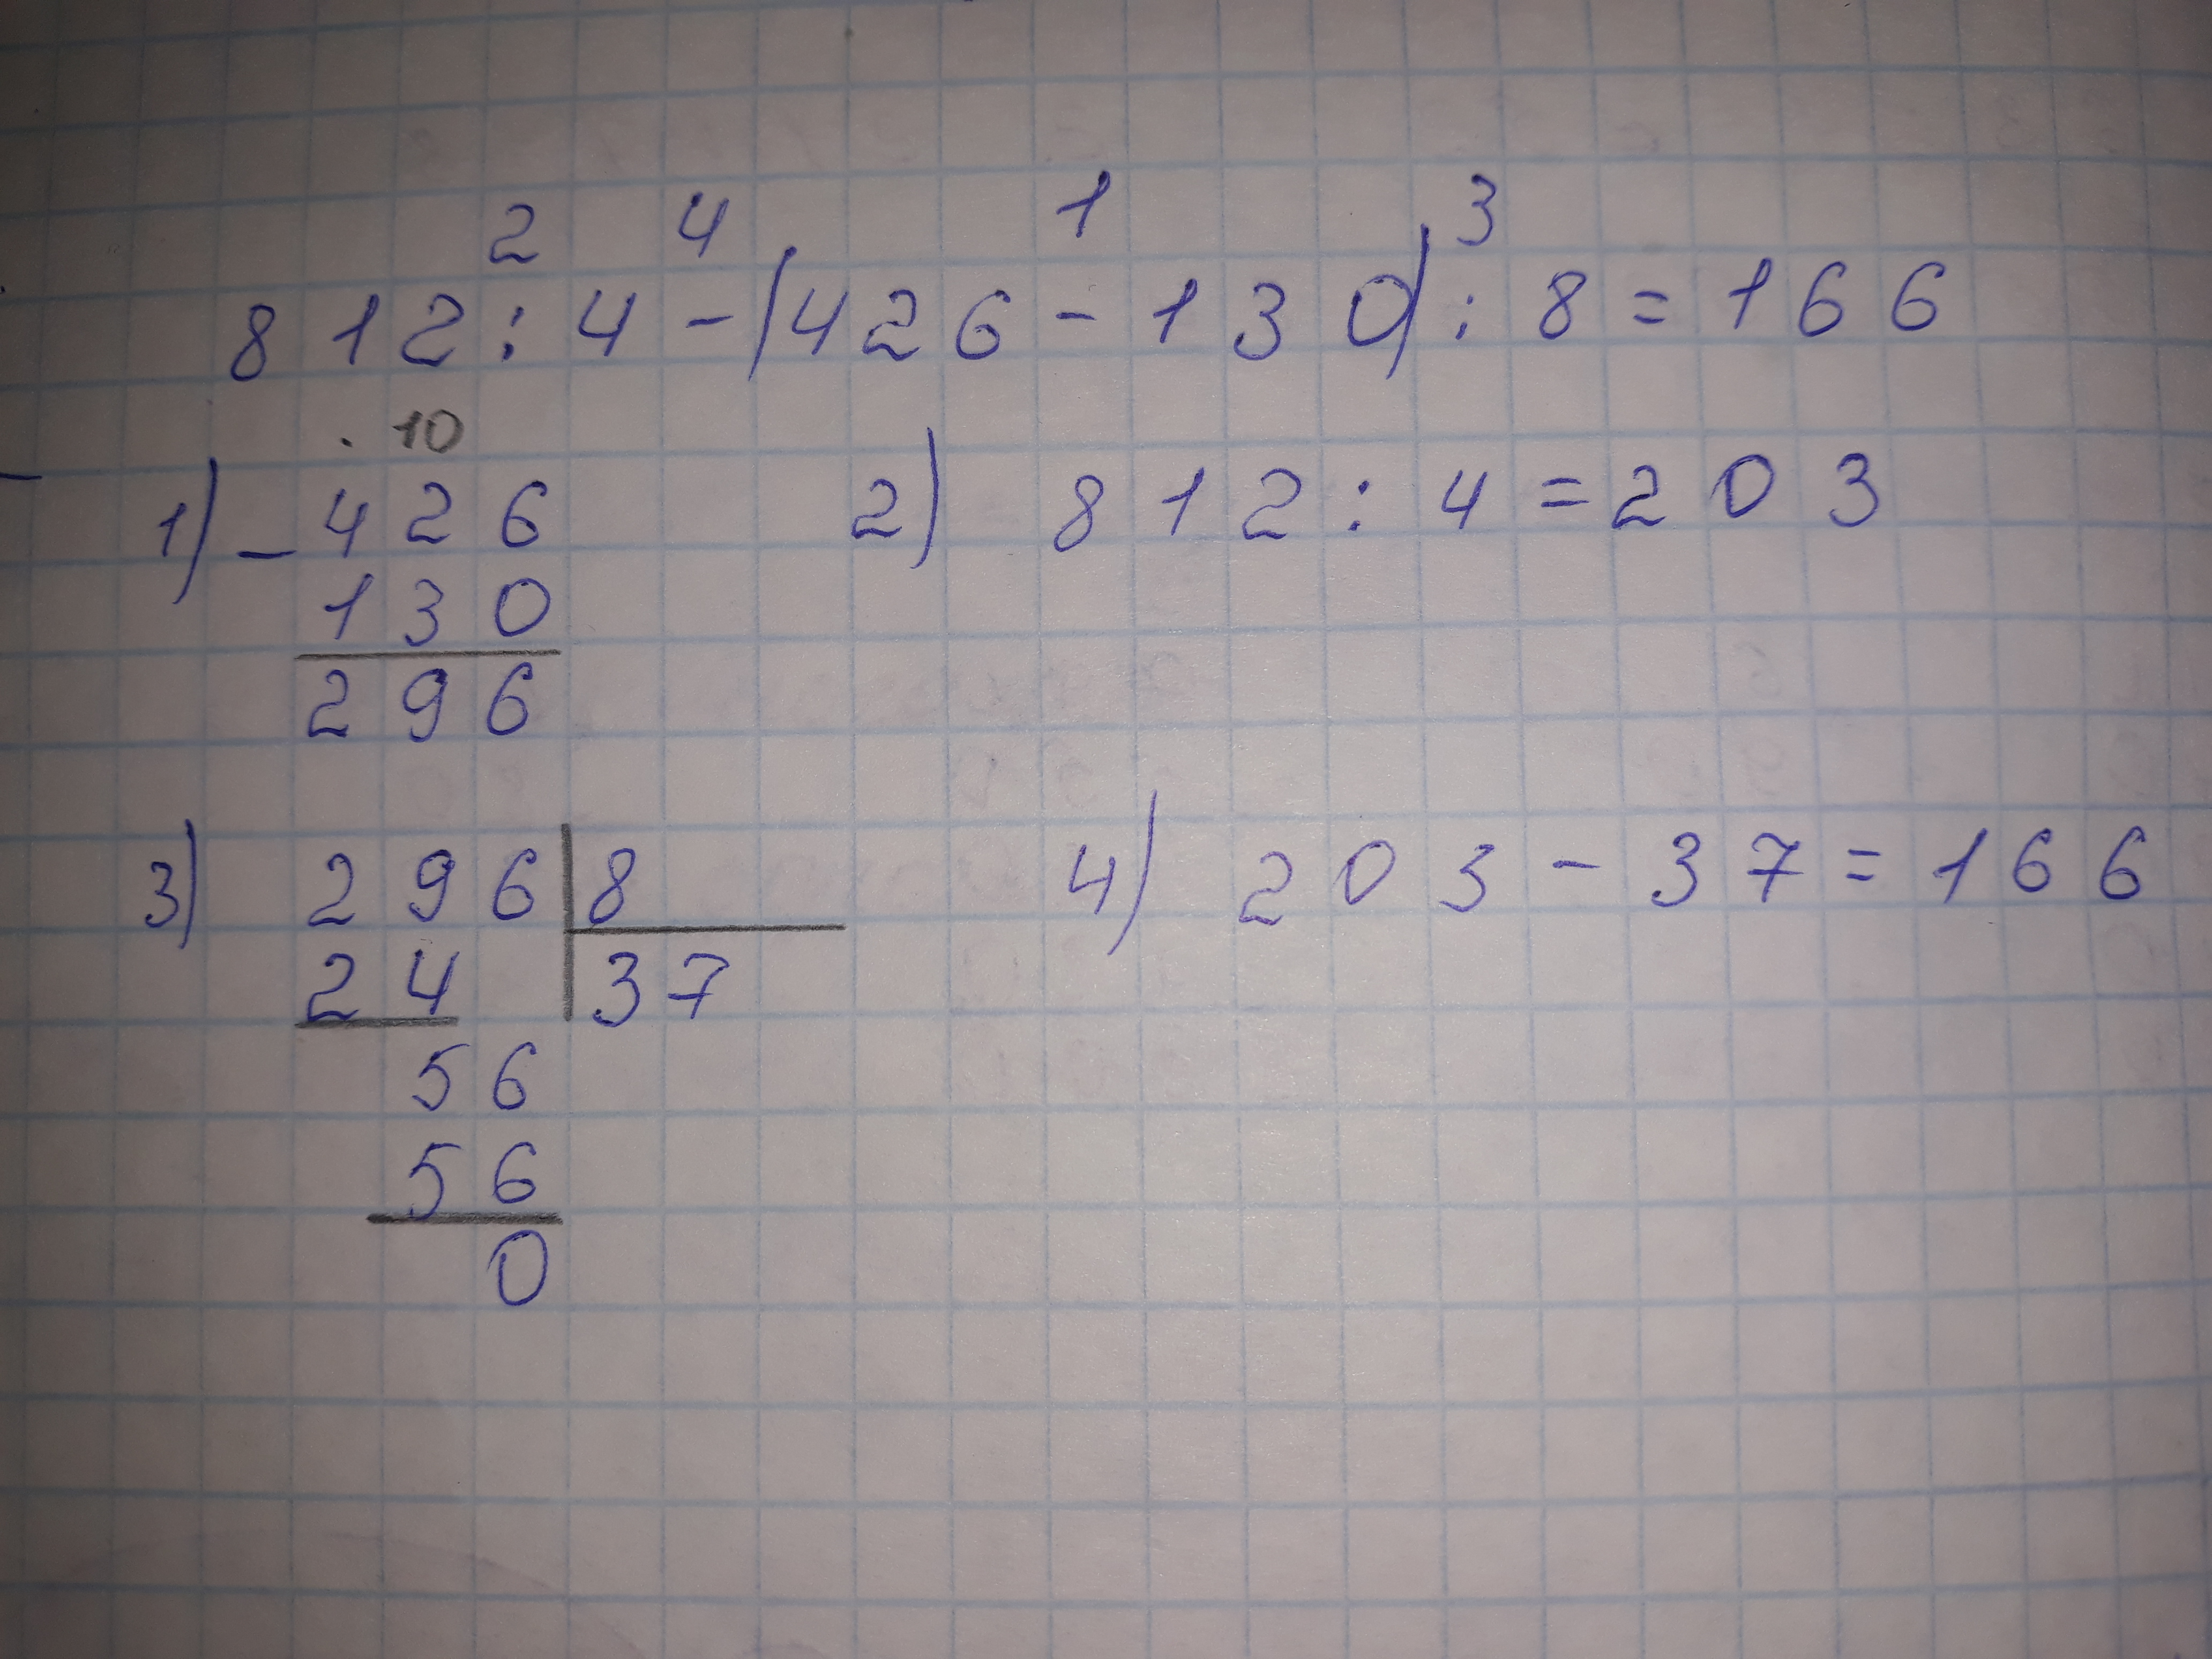 2 4 1 3
812:4-(426-130):8=166
. 10
1) -426
130
296
2) 812:4=203
3) 296|8
24 37
56
56
0
4) 203-37=166